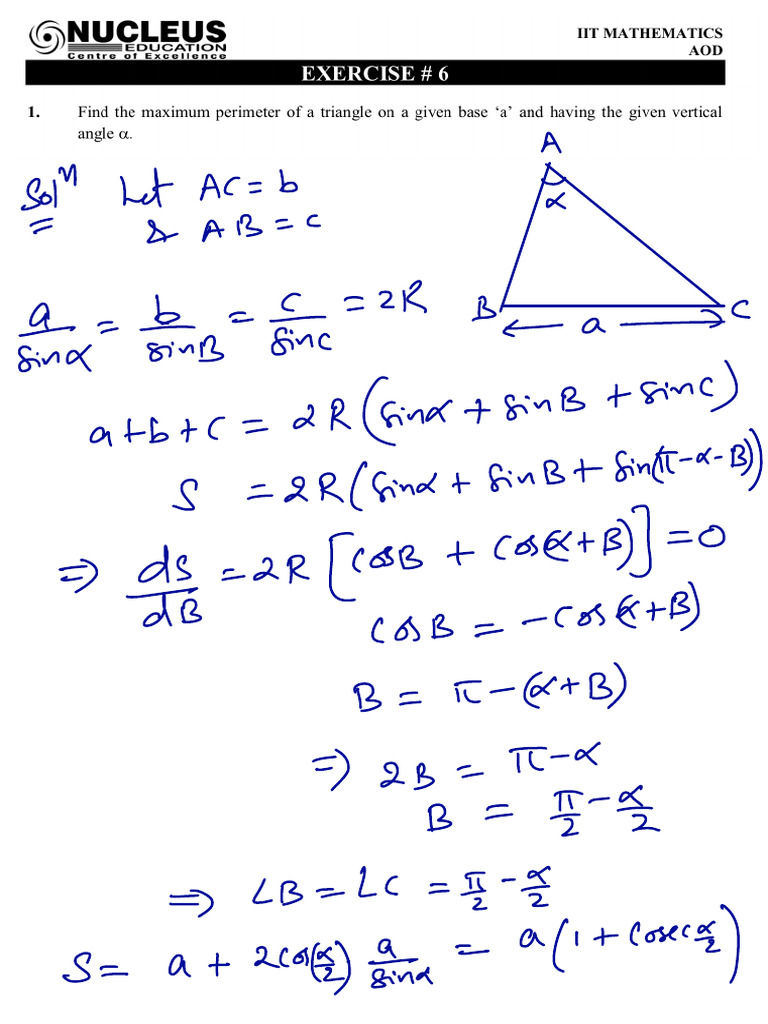 NUCLEUS
EDUCATION
Centre of Excellence
IIT MATHEMATICS
AOD
EXERCISE # 6
1. Find the maximum perimeter of a triangle on a given base ‘a’ and having the given vertical
angle α.
A
α
B
C
a
Solⁿ Let AC = b
& AB = c
a/sinα = b/sinB = c/sinC = 2R
a+b+c = 2R(sinα + sinB + sinC)
S = 2R(sinα + sinB + sin(π-α-B))
⇒ ds/dB = 2R[cosB + cos(α+B)] = 0
cosB = -cos(α+B)
B = π-(α+B)
⇒ 2B = π-α
B = π/2 - α/2
⇒ ∠B = ∠C = π/2 - α/2
S = a + 2cos(α/2) a/sinα = a(1 + cosec α/2)